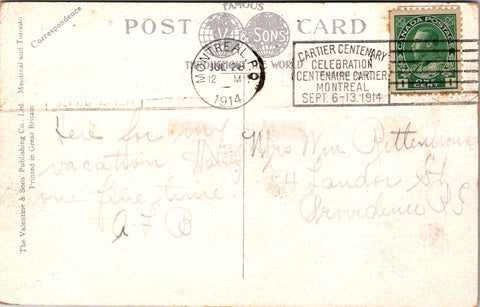 FAMOUS
POST CARD
V & SONS
THE
Correspondence
MONTREAL P.Q.
JUL 28
12 M
1914
CARTIER CENTENARY
CELEBRATION
CENTENAIRE CARTIER
MONTREAL
SEPT. 6-13, 1914
CANADA POSTAGE
1 CENT 1
The Valentine & Sons Publishing Co., Ltd. Montreal and Toronto
Printed in Great Britain
Here on my
vacation
one fine time.
A F B
Mrs Wm Rittenhouse
54 Landor St
Providence R.I.